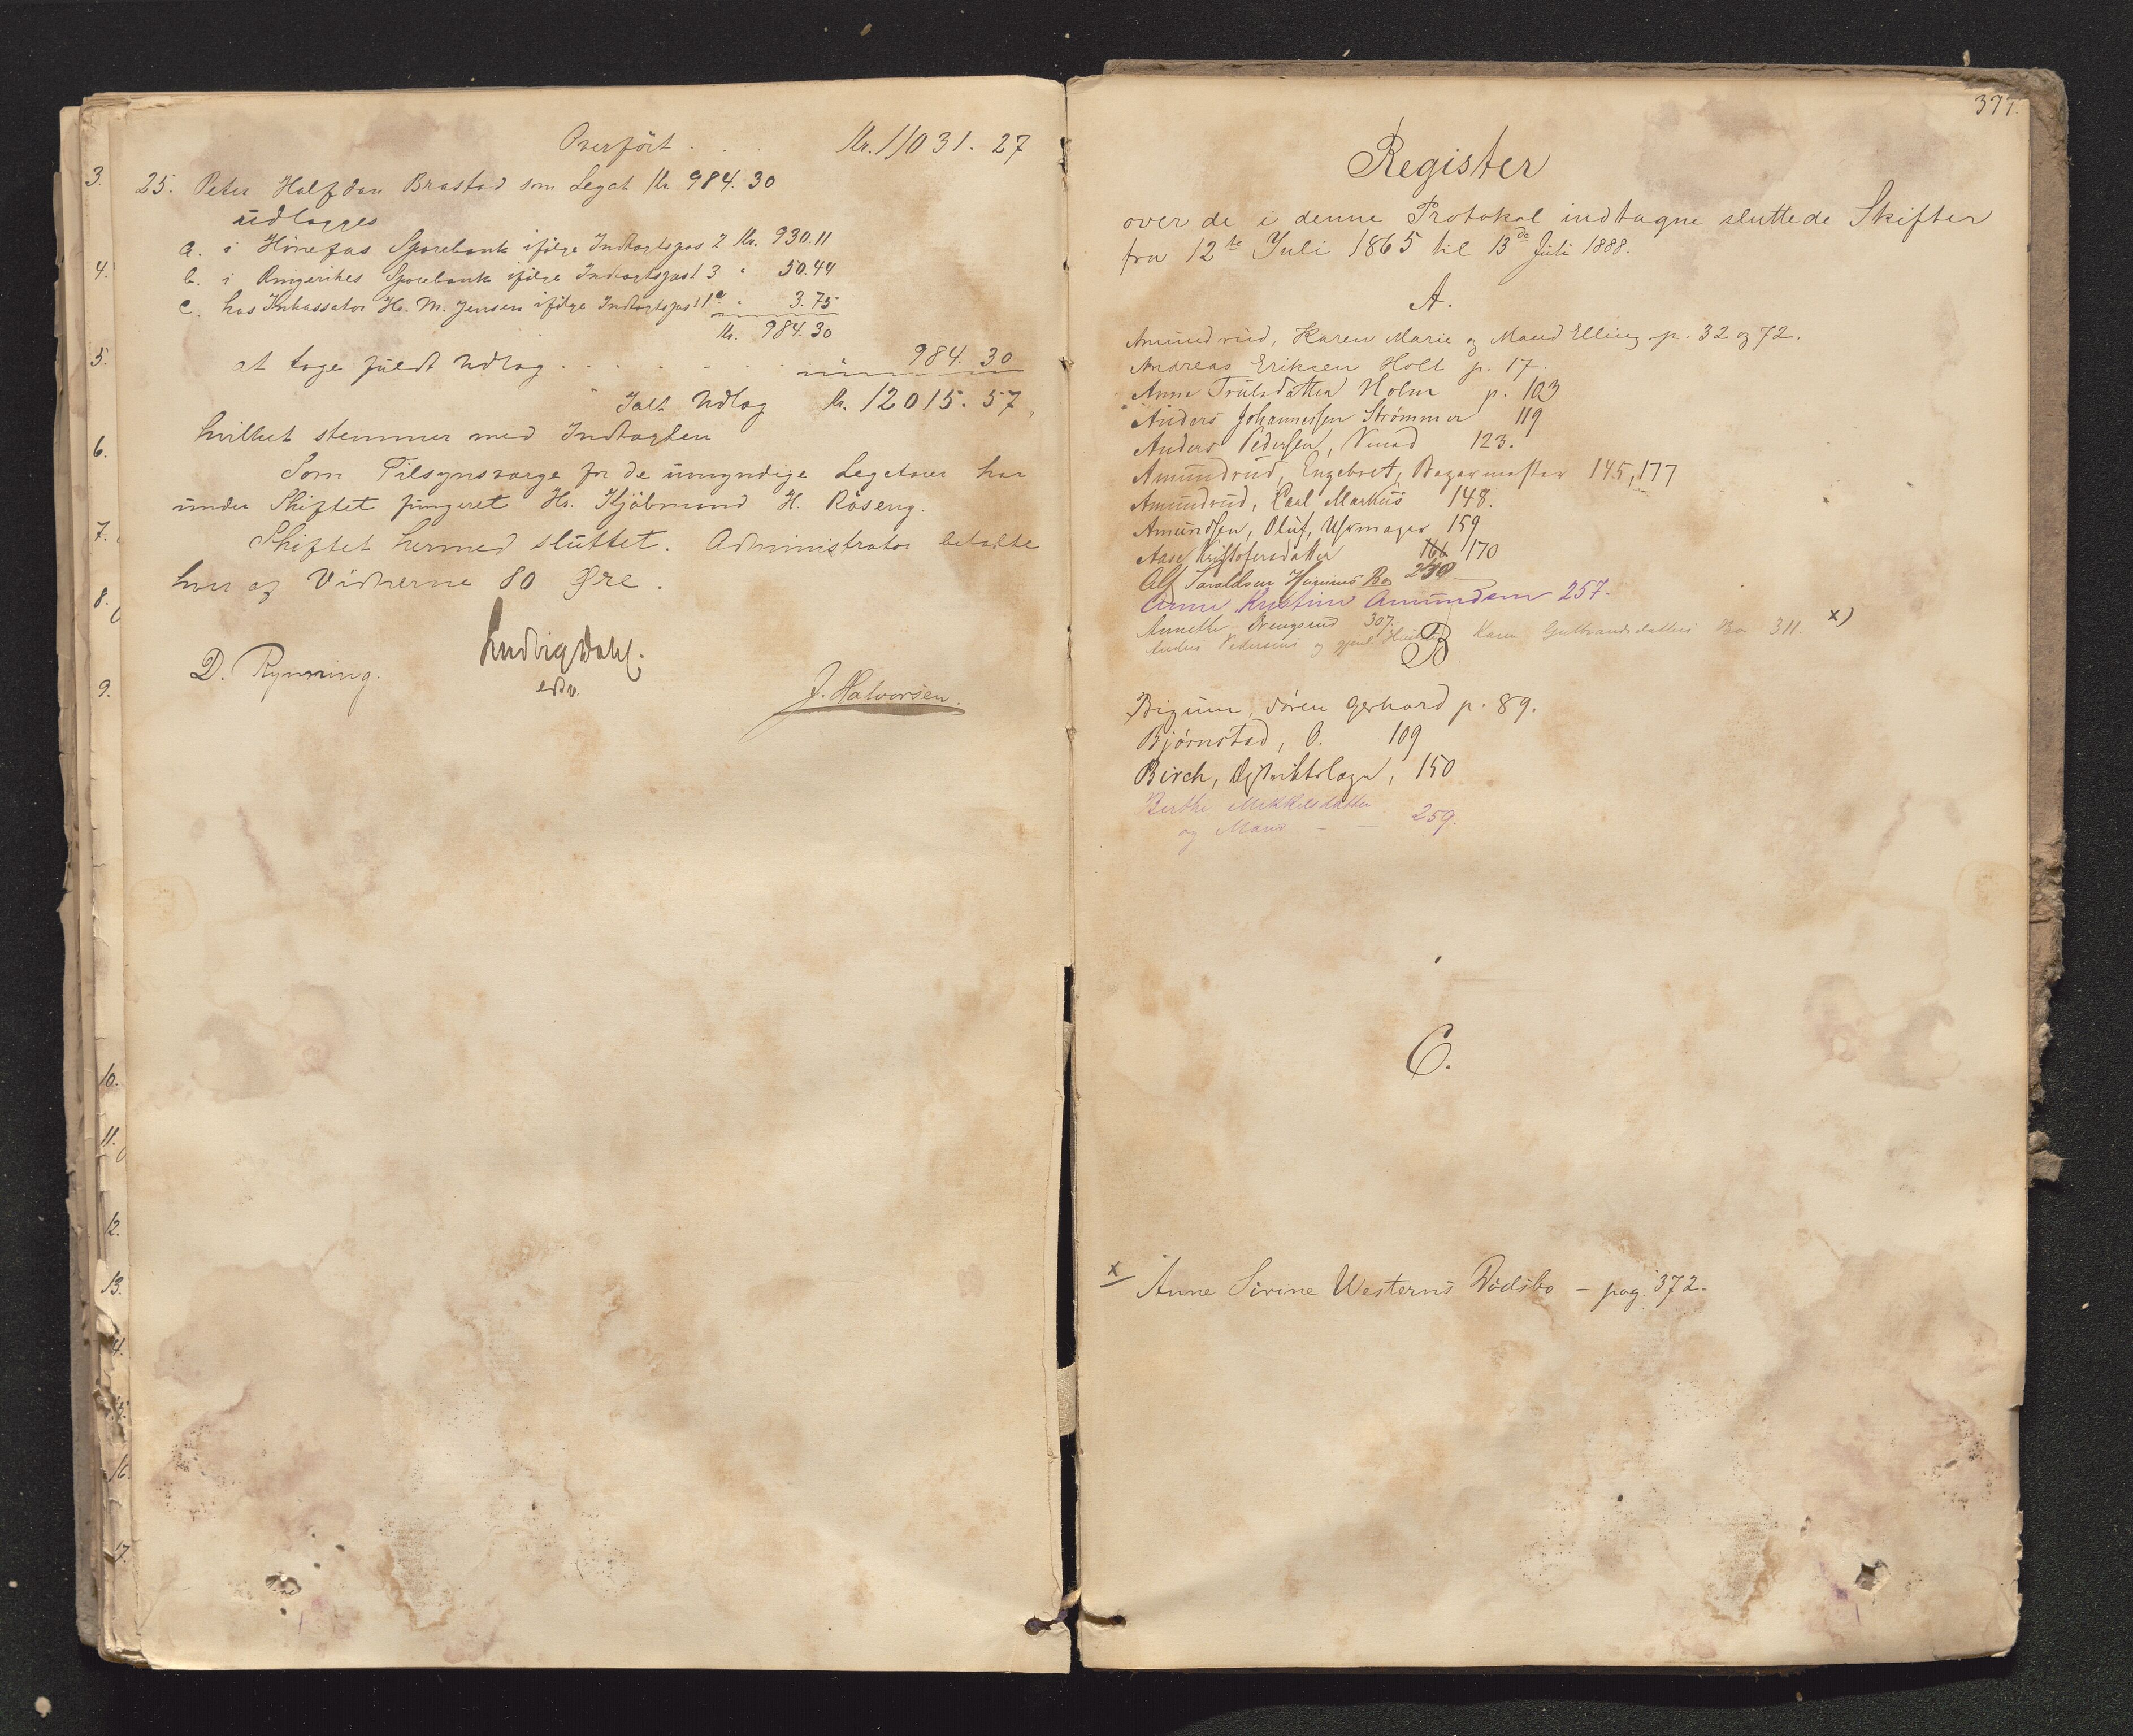 Overført . . . Kr. 11031. 27
25. Peter Halfdan Brastad som Legat Kr 984. 30
udlægges
a. i Hønefos Sparebank ifølge Indtægtspos 2 Kr. 930.11
b. i Ringerikes Sparebank ifølge Indtægtspost 3 " 50.44
c. hos Inkassator Hr. M. Jensen ifølge Indtægtspost 1 c " 3.75
Kr. 984.30
at tage fuldt Udlæg . . . . . . " 984. 30
Ialt Udlæg Kr. 12015. 57,
hvilket stemmer med Indtægten
Som Tilsynsværge for de umyndige Legatarer har
under Skiftet fungeret Hr. Kjøbmand H. Røseng.
Skiftet hermed sluttet. Administrator betalte
hver af Vidnerne 80 Øre.
Ludvig Dahl.
edv.
D. Rynning.
J. Halvorsen.
3.
4.
5.
6.
7.
8.
9.
10.
11.
12.
13.
4.
16.
17.
377.
Register
over de i denne Protokol indtagne sluttede Skifter
fra 12te Juli 1865 til 13de Juli 1888.
A.
Amundrud, Karen Marie og Mand Elling p. 32 og 72.
Andreas Eriksen Holt p. 17.
Anne Trulsdatter Holm p. 103
Anders Johannessen Strømmer 119
Anders Pedersen, 123.
Amundrud, Engebret, Bagermester 145, 177
Amundrud, Carl Markus 148.
Amundsen, Oluf, Urmager 159
Aase Kristofersdatter 166 170
Alf Haraldsen Bo 250
Anne Kristine Amundsen 257.
Annethe Brengsrud 307.
Anders Pedersens og Kari Gulbrandsdatters Bo 311. x)
B
Bigum, Søren Gerhard p. 89.
Bjørnstad, O. 109
Birch, Distriktslæge, 150
Berthe Mikkelsdatter
og Mand - - 259.
C.
x Anne Sirine Westerns Dødsbo - pag. 372.